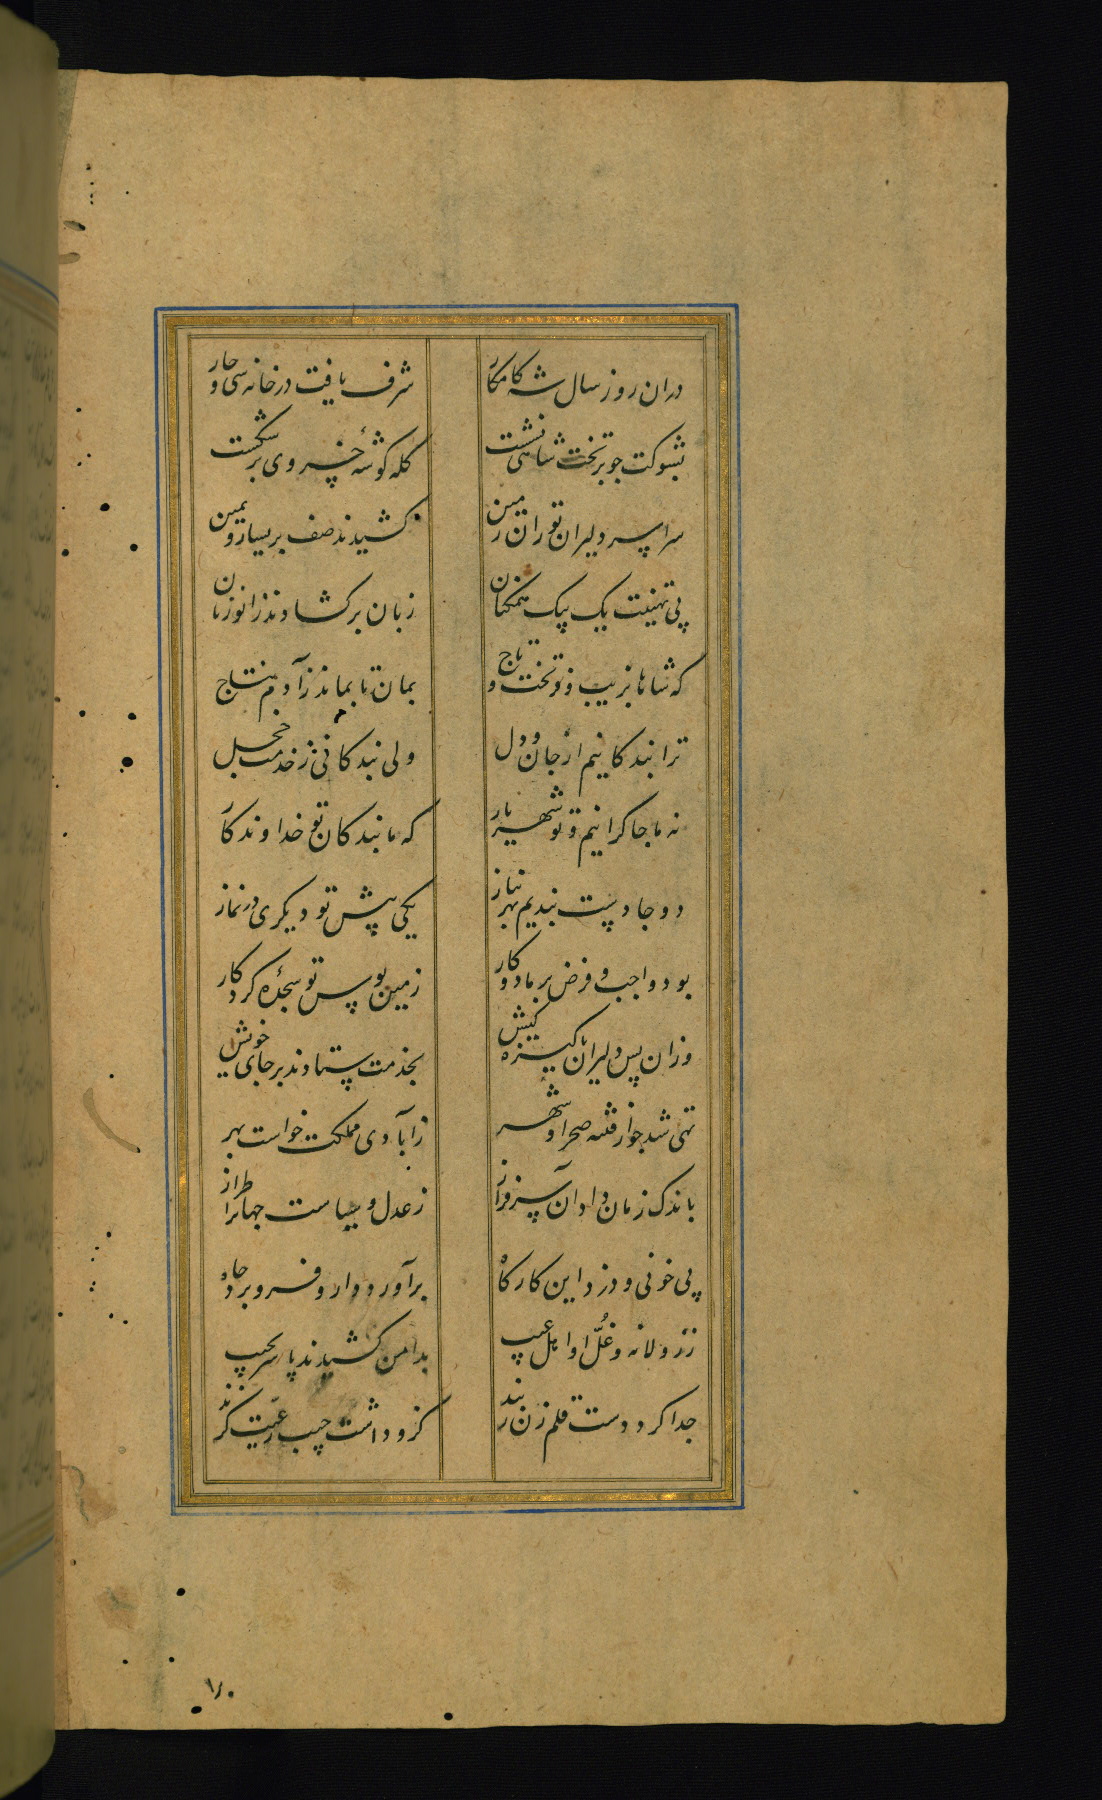 دران روز سال شه کامکار
شرف یافت در خانه سی و چار
بشوکت چو بر تخت شاهی نشست
کله گوشهٔ خسروی بر شکست
سراسر دلیران توران زمین
کشیدند صف بر یسار و یمین
پی تهنیت یک بیک همکنان
زبان برکشادند زانو زنان
که شاها بزیب و فر تخت و تاج
بمان تا بماند ز آدم نتاج
ترا بندکانیم از جان و دل
ولی بندکانی ز خدمت خجل
نه ما چاکرانیم و تو شهریار
که ما بندکان تو خداوندکار
دو جا دست بندیم بهر نیاز
یکی پیش تو دیکری در نماز
بود واجب و فرض بر ما دو کار
زمین بوس تو سجدهٔ کردکار
وزان پس دلیران پاکیزه کیش
بخدمت ستادند بر جای خویش
تهی شد چو از فتنه صحرا و شهر
ز آبادی مملکت خواست بهر
باندک زمان داد آن سرفراز
ز عدل و سیاست جهانرا طراز
پی خونی و دزد این کارکاه
برآورد دار و فرو برد چاه
ز زولانه و غل
بدامن کشیدند پا سر بجیب
جدا کرد دست قلم زن ز بند
کزو داشت جیب رعیت کزند